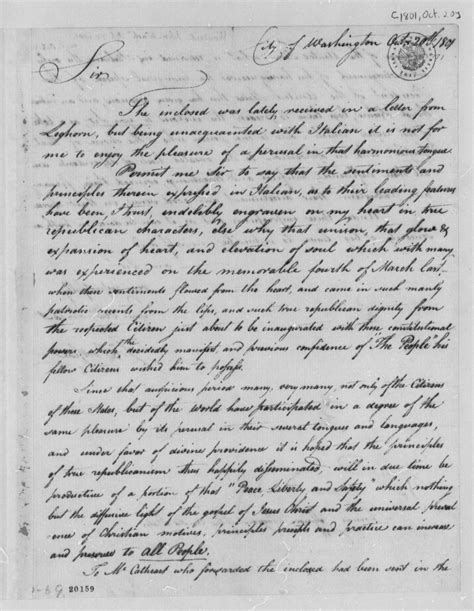 [1801, Oct. 20]
City of Washington Octr. 20th 1801
Sir
The enclosed was lately received in a letter from
Leghorn, but being unacquainted with Italian it is not for
me to enjoy the pleasure of a perusal in that harmonious tongue.
Permit me Sir to say that the sentiments and
principles therein expressed in Italian, as to their leading features
have been, I trust, indelibly engraven on my heart in true
republican characters, else why that unison, that glow &
expansion of heart, and elevation of soul which with many
was experienced on the memorable fourth of March last,
when those sentiments flowed from the heart, and came in such manly
patriotic accents from the lips, and such true republican dignity from
the respected Citizen just about to be inaugurated with those constitutional
powers which the decidedly manifest, and previous confidence of "The People" his
fellow Citizens wished him to possess.
Since that auspicious period many, very many not only of the Citizens
of these States, but of the World have participated in a degree of the
same pleasure by its perusal in their several tongues and languages,
and under favor of divine providence it is hoped that the principles
of true republicanism thus happily disseminated, will in due time be
productive of a portion of that "Peace, Liberty and Safety" which nothing
but the diffusive light of the gospel of Jesus Christ and the universal preval
ence of Christian motives, principles precepts and practice can increase
and preserve to all People.
To Mr. Cathcart who forwarded the inclosed had been sent in the
20159